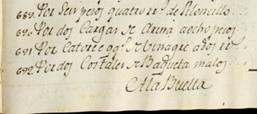 689. Por Seis pesos quatro rr.s de Moncillo
690. Por dos Cargas de Arina a ocho pesos
691 Por Catorce q.s de Vinagre a dos rr.s
692. Por dos Costales de Baqueta malos
A la Buelta